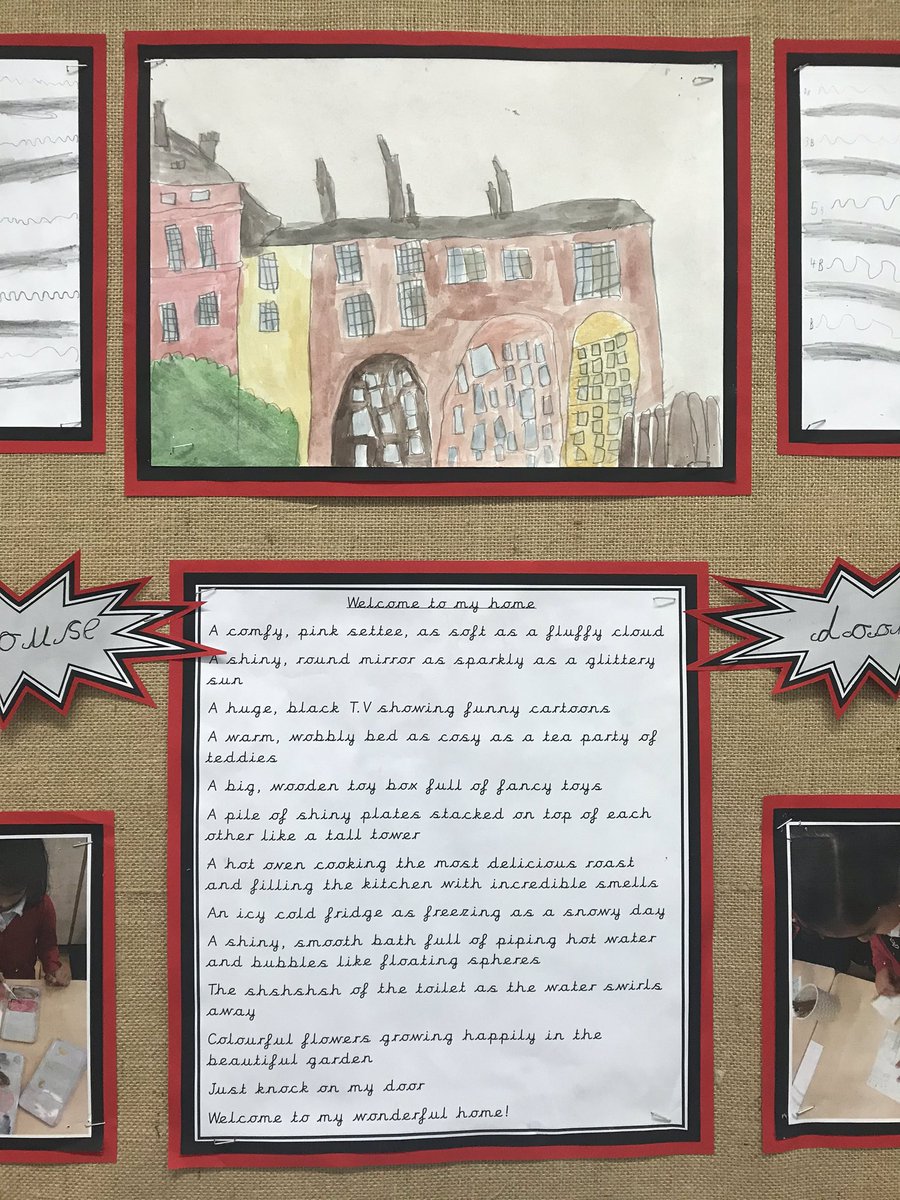 5B
4B
B
ouse
doo
Welcome to my home
A comfy, pink settee, as soft as a fluffy cloud
A shiny, round mirror as sparkly as a glittery
sun
A huge, black T.V showing funny cartoons
A warm, wobbly bed as cosy as a tea party of
teddies
A big, wooden toy box full of fancy toys
A pile of shiny plates stacked on top of each
other like a tall tower
A hot oven cooking the most delicious roast
and filling the kitchen with incredible smells
An icy cold fridge as freezing as a snowy day
A shiny, smooth bath full of piping hot water
and bubbles like floating spheres
The shshshsh of the toilet as the water swirls
away
Colourful flowers growing happily in the
beautiful garden
Just knock on my door
Welcome to my wonderful home!